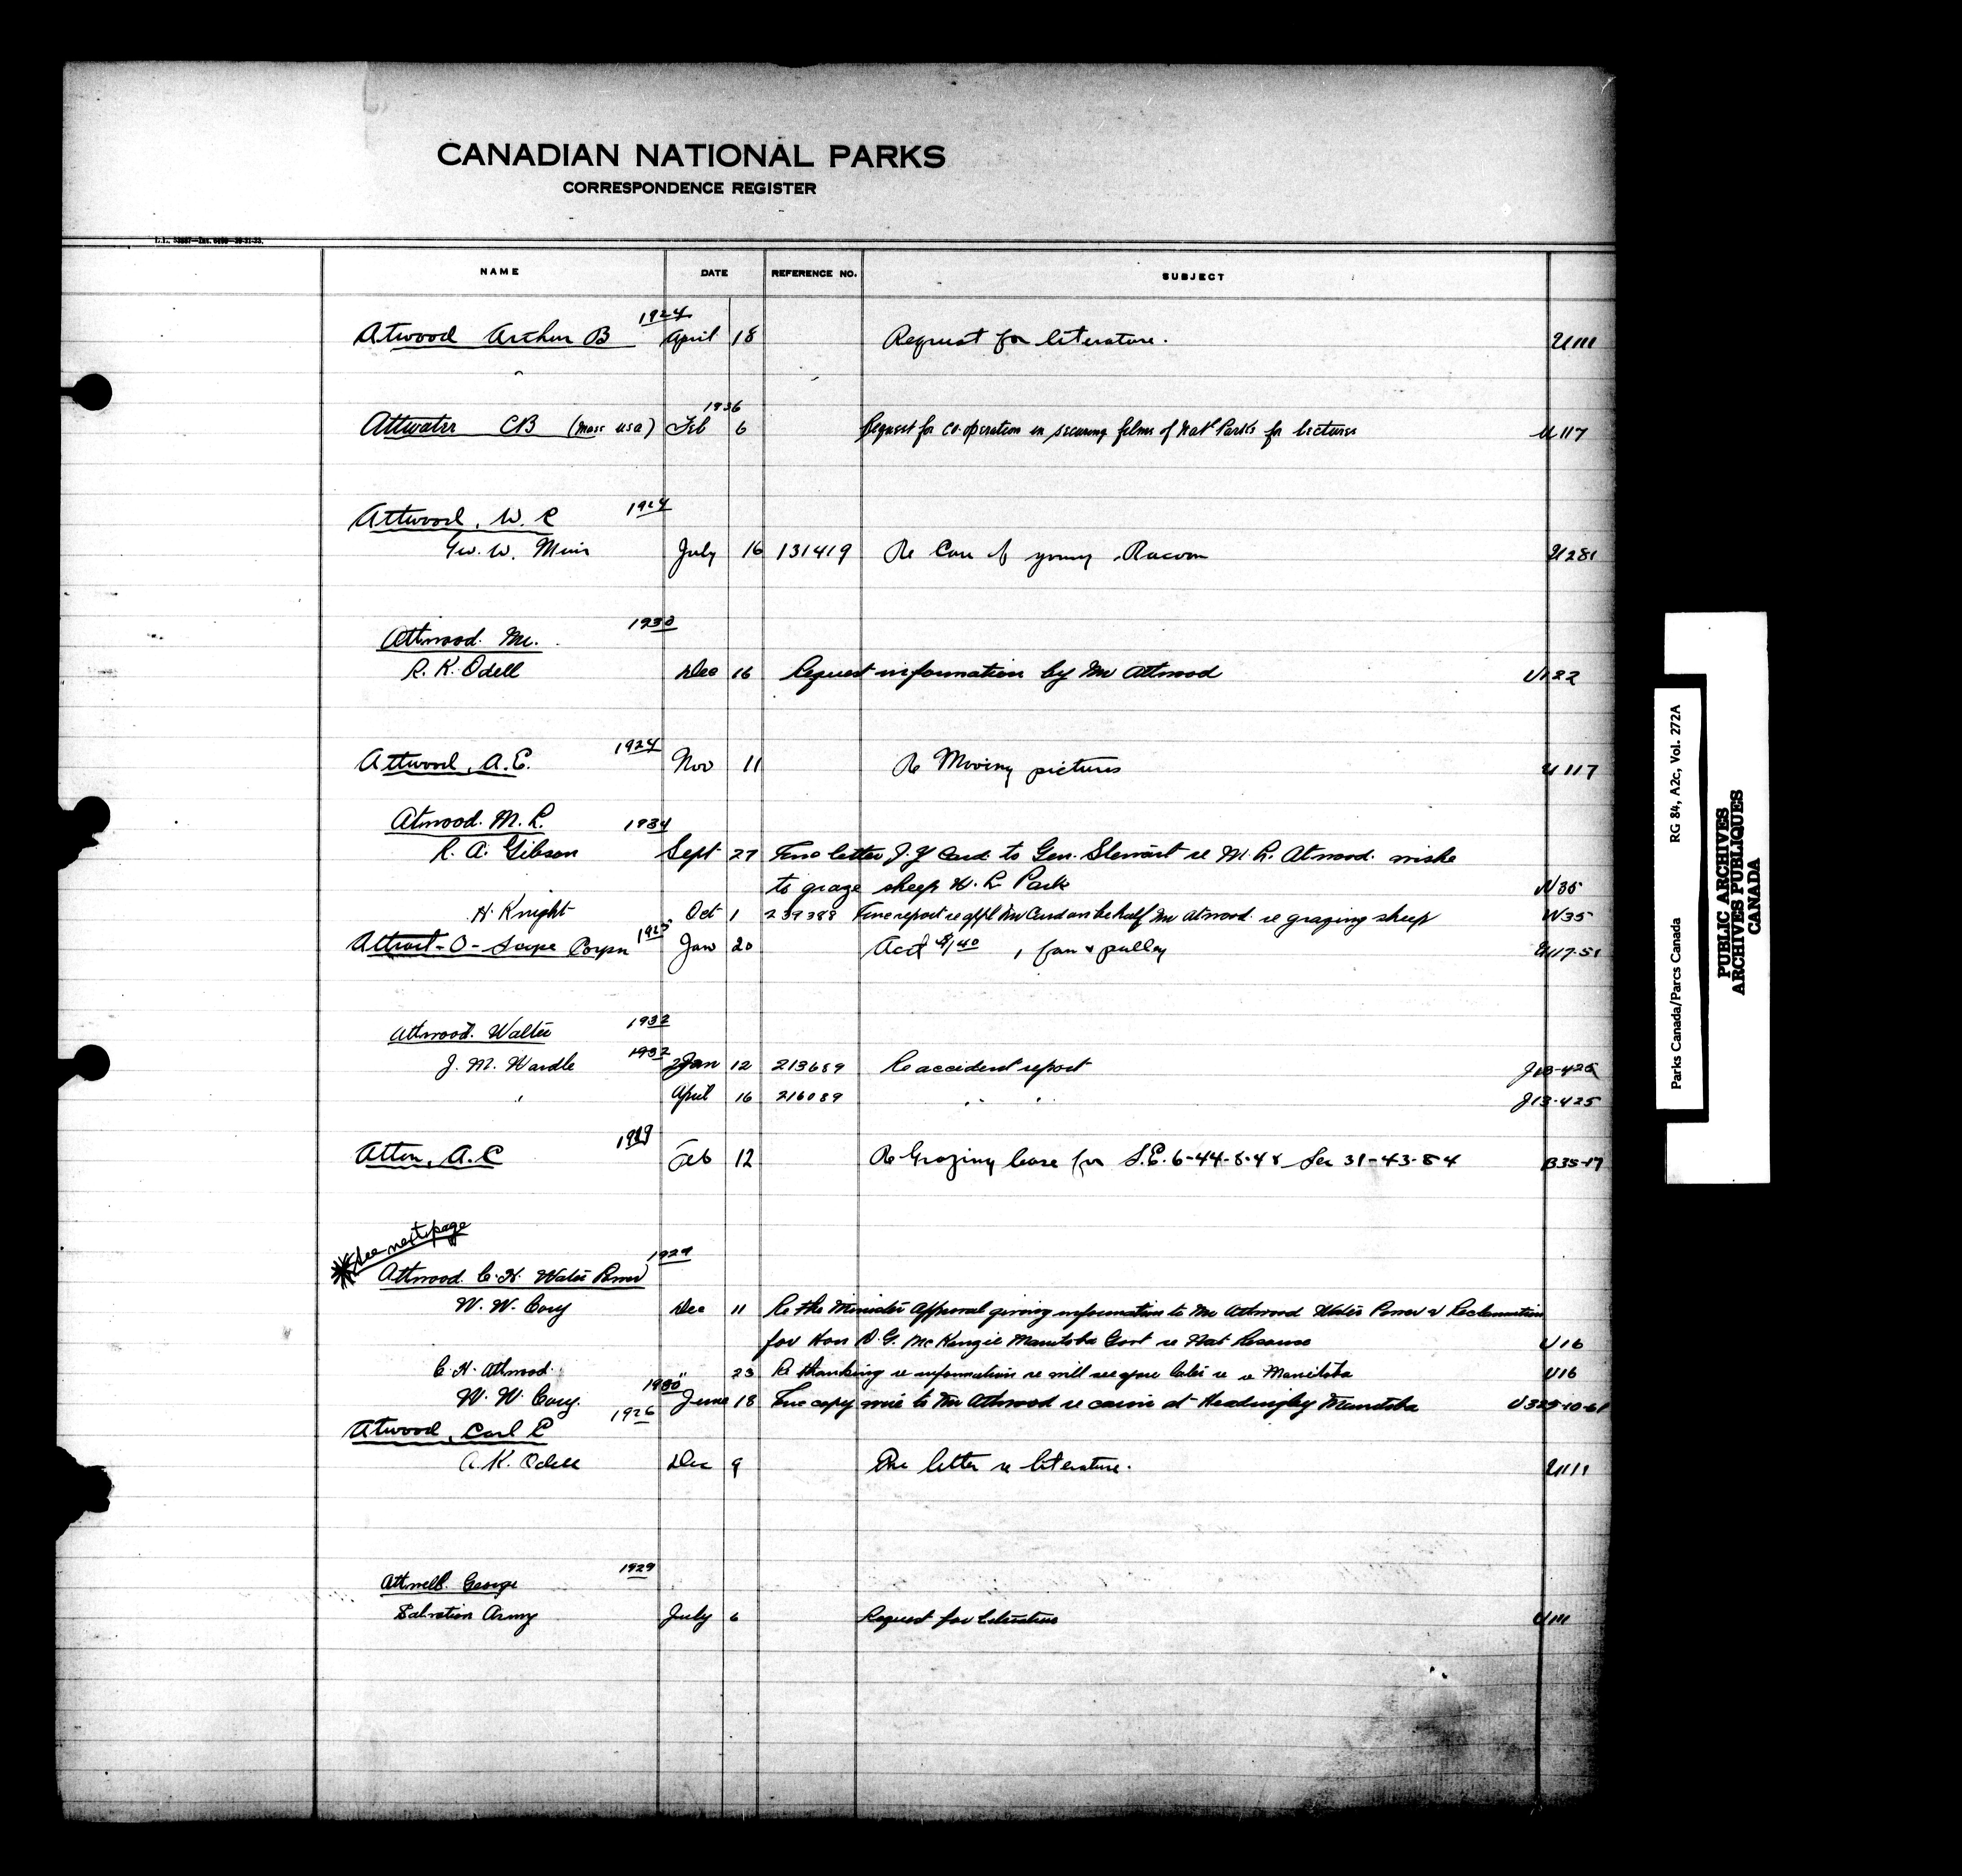 CANADIAN NATIONAL PARKS
CORRESPONDENCE REGISTER
NAME DATE REFERENCE NO. SUBJECT
1924
Atwood Arthur B April 18 Request for literature. U111
1936
Attwater CB (Mass USA) Feb 6 Request for co-operation in securing films of Nat Parks for lectures U117
Attwood, W. R 1924
Geo. W. Muir July 16 131419 Re Care of young Racoon U281
Attwood. Mr. 1930
R. K. Odell Dec 16 Request information by Mr Attwood U122
Attwood, A.E. 1924 Nov 11 Re Moving pictures U117
Atwood. M. L. 1934
R. A. Gibson Sept 27 Enc letter J. Y Card. to Gen. Stewart re M. L. Atwood. wishe
to graze sheep W. L Park W35
H. Knight Oct 1 239388 Enc report re appl Mr Card on behalf Mr Atwood. re grazing sheep W35
Attract-O-Scope Corpn Jan 20 Acct $1.40, fan & pulley U117-51
Attwood. Walter 1932
J. M. Wardle 1932 Jan 12 213689 Re accident report J13-425
" April 16 216089 " " J13-425
Atton, A.C Feb 12 Re Grazing lease for S.E. 6-44-8-4 & Sec 31-43-8-4 B35-17
See next page
1929
Attwood. C. H. Water Power
W. W. Cory Dec 11 Re the Minister approval giving information to Mr Attwood Water Power & Reclamation
for Hon D. G. McKenzie Manitoba Govt re Nat Resource U16
C. H. Attwood. " 23 Re thanking re information re will see you later re Manitoba U16
1930
W. W. Cory. June 18 Enc copy wire to Mr Attwood re cairn at Headingley Manitoba
1926
Atwood, Carl E
R. K. Odell Dec 9 letter re literature. U111
1929
Attwell. George
Salvation Army July 6 Request for literature U111
Parks Canada/Parcs Canada RG 84, A2c, Vol. 272A
PUBLIC ARCHIVES
ARCHIVES PUBLIQUES
CANADA